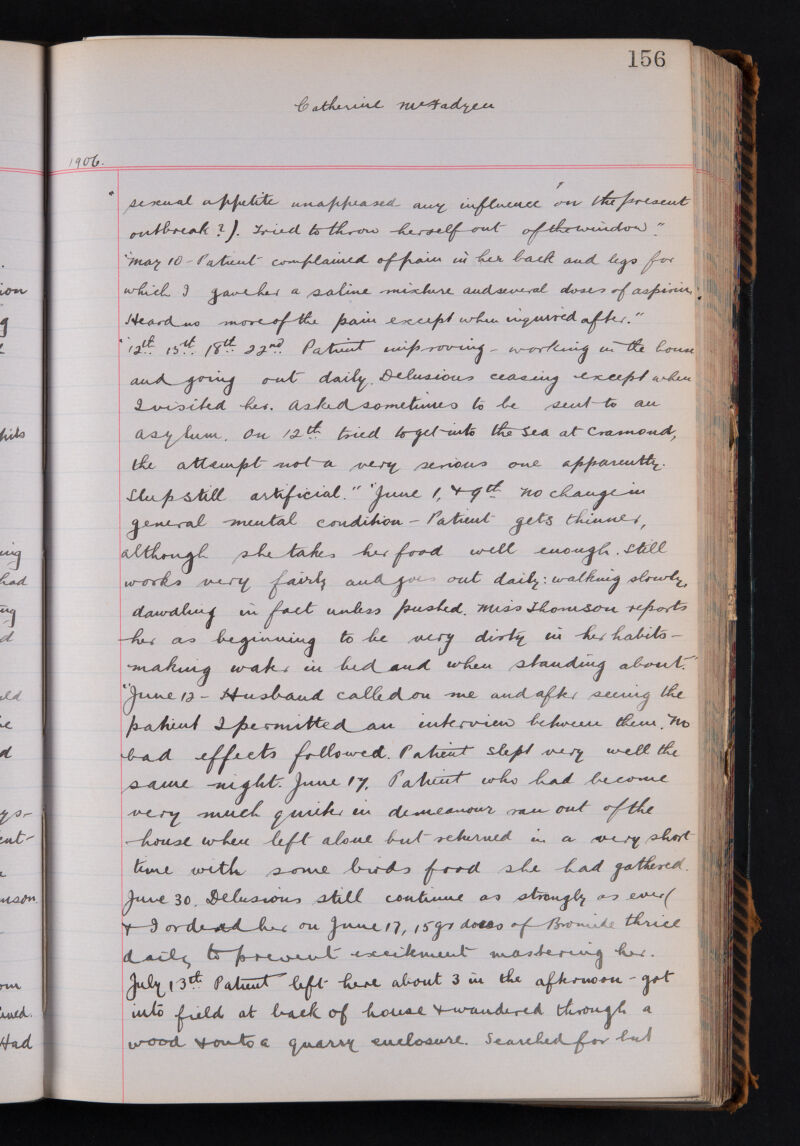 156
Catherine McFadyen
1906.
" sexual appetite unappeased any influence on the present
outbreak?). Tried to throw herself out of the window."
"May 10 - Patient complained of pain in her back and legs for
which I gave her a saline mixture and several doses of aspirin.
Heard no more of the pain except when inquired after."
"12th 15th 18th 22nd Patient improving - working in the house
and going out daily. Delusions ceasing except when
I visited her. Asked sometimes to be sent to an
asylum. On 12th tried to get into the sea at Cramond,
the attempt not a very serious one apparently.
Sleep still artificial." "June 1, & 9th No change in
general mental condition - Patient gets thinner,
although she takes her food well enough. Still
works very fairly and goes out daily: walking slowly,
dawdling in fact unless pushed. Miss Thomson reports
her as beginning to be very dirty in her habits -
making water in bed and when standing about."
"June 12 - Husband called on me and after seeing the
patient I permitted an interview between them. No
bad effects followed. Patient slept very well the
same night. June 17. Patient who had become
very much quieter in demeanour ran out of the
house when left alone but returned in a very short
time with some birds food she had gathered.
June 30. Delusions still continue as strongly as ever (
& I ordered her on June 17, 15gr doses of Bromide thrice
daily to prevent excitement mastering her.
July 13th Patient left here about 3 in the afternoon - got
into field at back of house & wandered through a
wood & onto a quarry enclosure. Searched for but